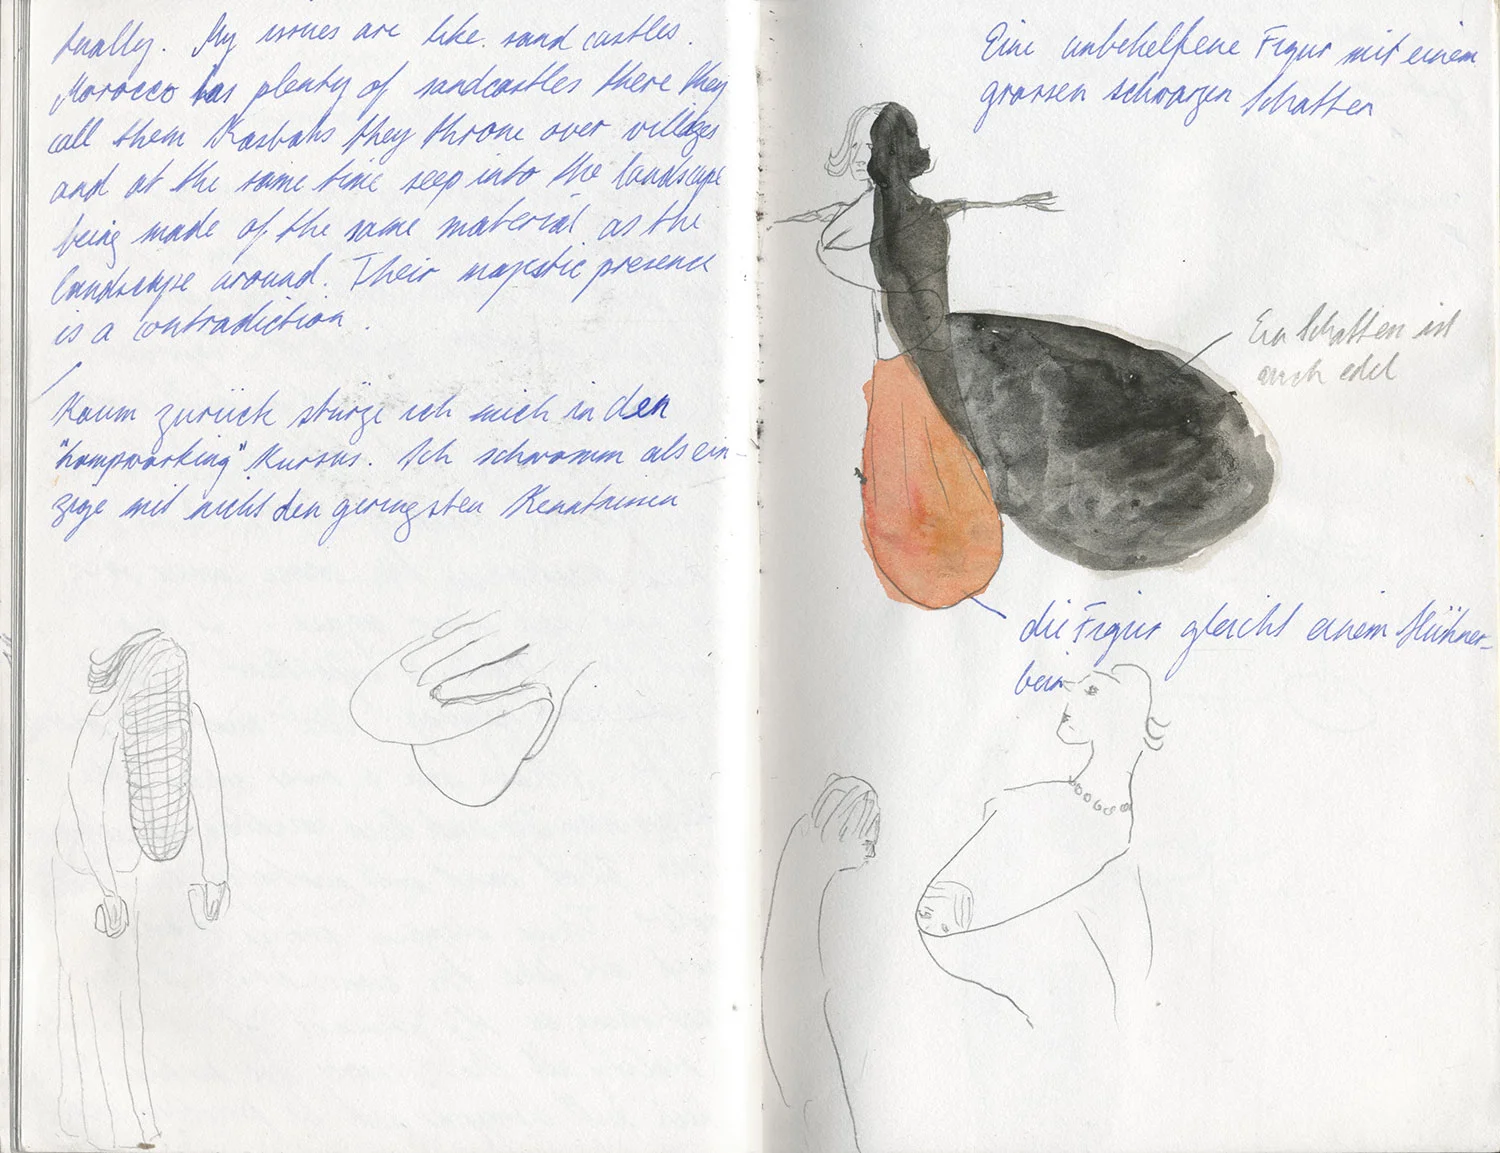 tually. My issues are like sand castles.
Morocco has plenty of sandcastles there they
call them Kasbahs they throne over villages
and at the same time seep into the landscape
being made of the same material as the
landscape around. Their majestic presence
is a contradiction.
Kaum zurück stürze ich mich in den
"Lampworking" Kursus. Ich schwamm als ein-
zige mit nicht den geringsten Kenntnissen
Eine unbehelfene Figur mit einem
grossen schwarzen Schatten
Ein Schatten ist
auch edel
die Figur gleicht einem Hühner-
bein